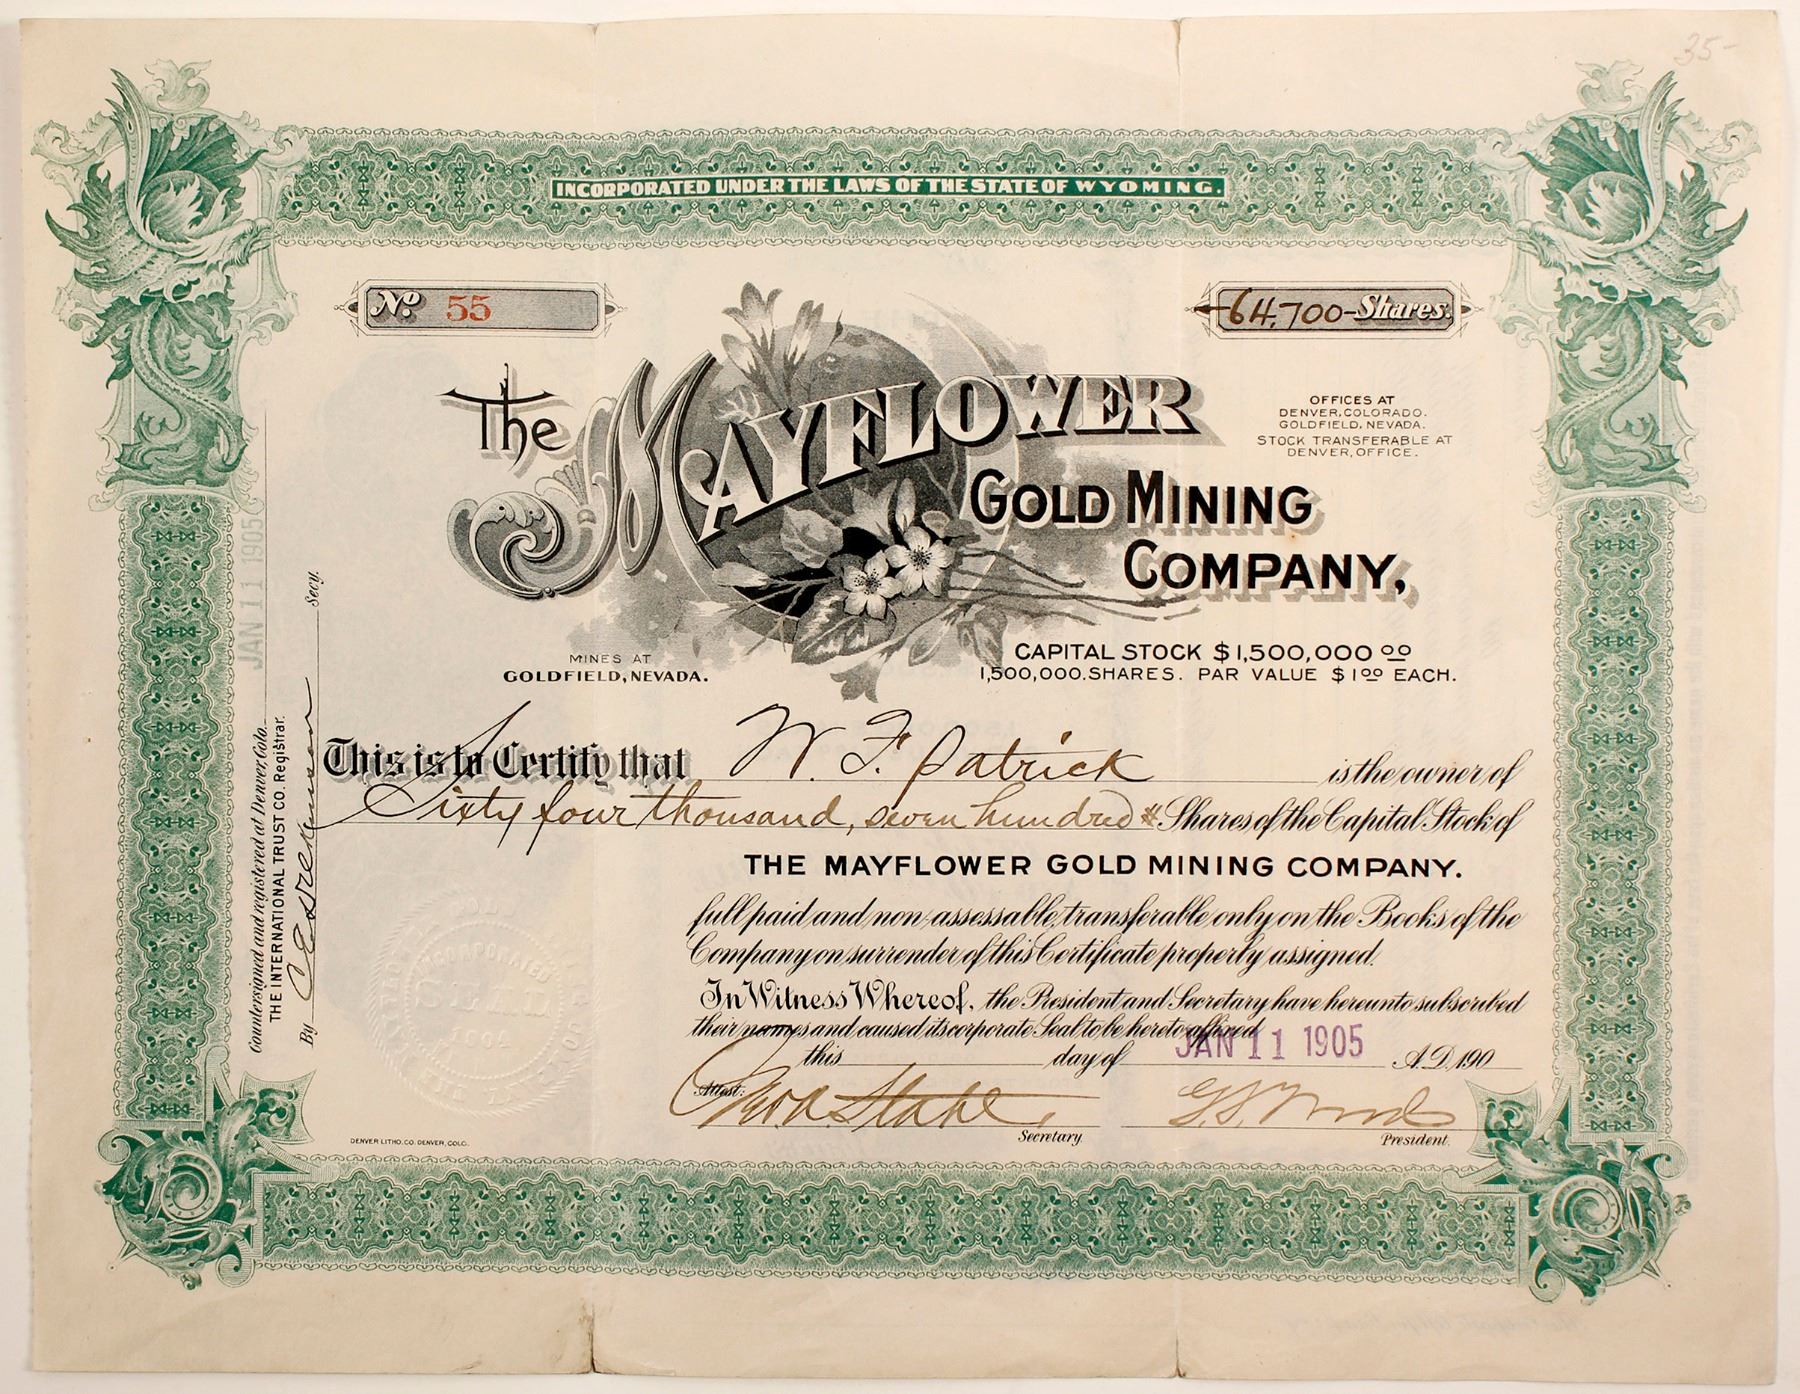 35-
INCORPORATED UNDER THE LAWS OF THE STATE OF WYOMING.
No. 55
64,700 - Shares.
The MAYFLOWER
GOLD MINING
COMPANY,
OFFICES AT
DENVER, COLORADO.
GOLDFIELD, NEVADA.
STOCK TRANSFERABLE AT
DENVER, OFFICE.
MINES AT
GOLDFIELD, NEVADA.
CAPITAL STOCK $1,500,000 00
1,500,000. SHARES. PAR VALUE $1 00 EACH.
This is to Certify that W. F. Patrick is the owner of
Sixty four thousand, seven hundred Shares of the Capital Stock of
THE MAYFLOWER GOLD MINING COMPANY.
full paid and non-assessable, transferable only on the Books of the
Company on surrender of this Certificate properly assigned.
In Witness Whereof, the President and Secretary have hereunto subscribed
their names and caused its corporate Seal to be hereto affixed
this day of JAN 11 1905 A.D. 190
Attest:
Secretary.
G. S. Wood
President.
DENVER LITHO. CO. DENVER, COLO.
JAN 11 1905
Countersigned and registered at Denver Colo.
THE INTERNATIONAL TRUST CO. Registrar.
By Secy.
INCORPORATED
SEAL
1904